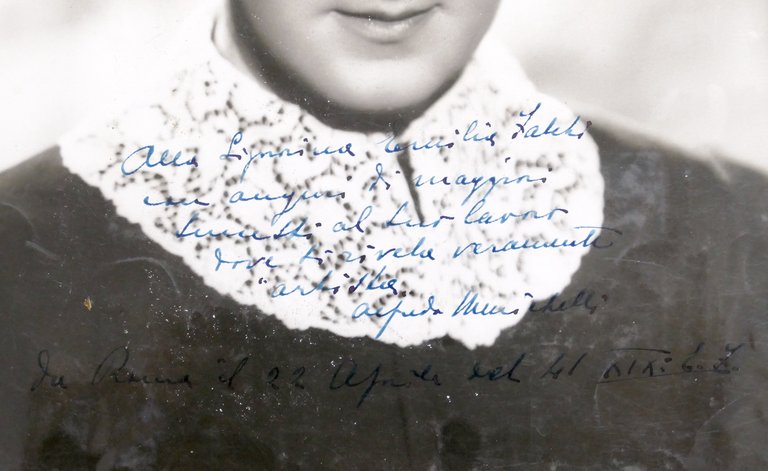 Alla Signorina Emilia
con auguri di maggiori
al suo lavoro
dove si rivela veramente
"artista"
Alfredo
da Roma il 22 Aprile del 41 XIX: